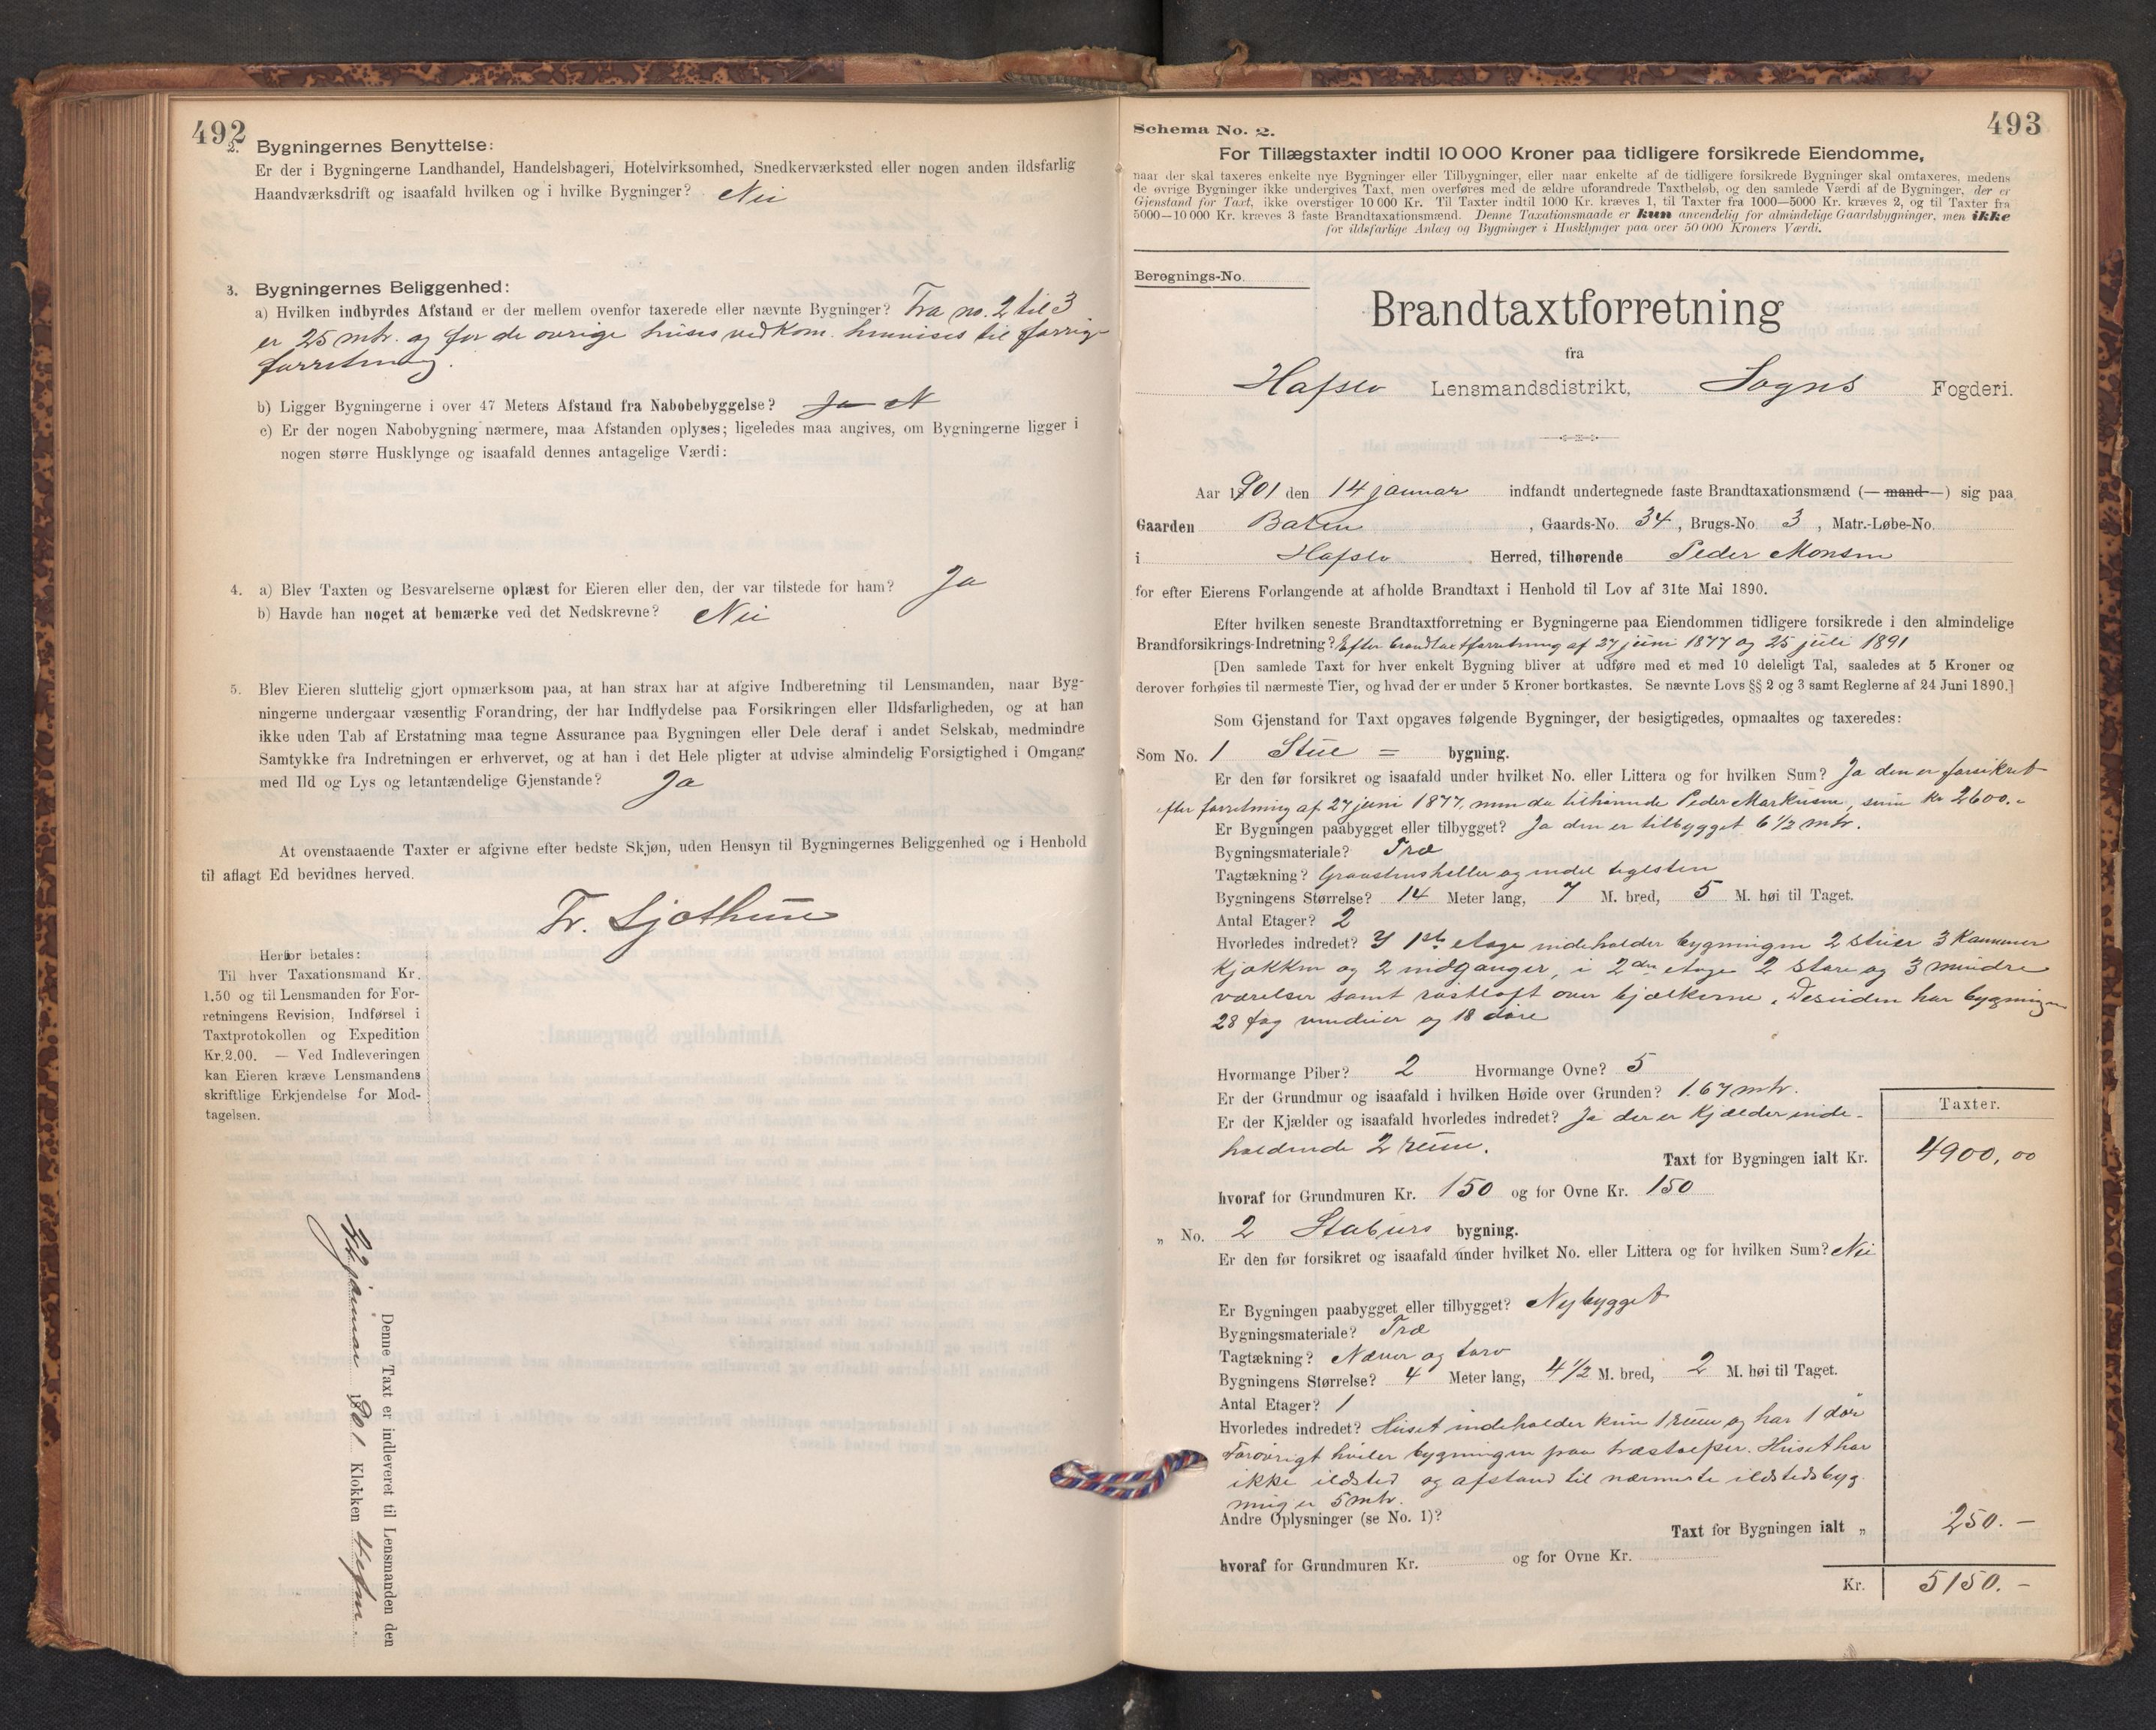 492
2. Bygningernes Benyttelse:
Er der i Bygningerne Landhandel, Handelsbageri, Hotelvirksomhed, Snedkerværksted eller nogen anden ildsfarlig
Haandværksdrift og isaafald hvilken og i hvilke Bygninger? Nei
3. Bygningernes Beliggenhed:
a) Hvilken indbyrdes Afstand er der mellem ovenfor taxerede eller nævnte Bygninger? Fra no. 2 til 3
er 25 mtr. og for de øvrige huses vedkom. henvises til forrige
forretning.
b) Ligger Bygningerne i over 47 Meters Afstand fra Nabobebyggelse? Ja
c) Er der nogen Nabobygning nærmere, maa Afstanden oplyses; ligeledes maa angives, om Bygningerne ligger i
nogen større Husklynge og isaafald dennes antagelige Værdi:
4. a) Blev Taxten og Besvarelserne oplæst for Eieren eller den, der var tilstede for ham? Ja
b) Havde han noget at bemærke ved det Nedskrevne? Nei
5. Blev Eieren sluttelig gjort opmærksom paa, at han strax har at afgive Indberetning til Lensmanden, naar Byg-
ningerne undergaar væsentlig Forandring, der har Indflydelse paa Forsikringen eller Ildsfarligheden, og at han
ikke uden Tab af Erstatning maa tegne Assurance paa Bygningen eller Dele deraf i andet Selskab, medmindre
Samtykke fra Indretningen er erhvervet, og at han i det Hele pligter at udvise almindelig Forsigtighed i Omgang
med Ild og Lys og letantændelige Gjenstande? Ja
At ovenstaaende Taxter er afgivne efter bedste Skjøn, uden Hensyn til Bygningernes Beliggenhed og i Henhold
til aflagt Ed bevidnes herved.
Fr. Sjøthun
Herfor betales:
Til hver Taxationsmand Kr.
1.50 og til Lensmanden for For-
retningens Revision, Indførsel i
Taxtprotokollen og Expedition
Kr. 2.00. — Ved Indleveringen
kan Eieren kræve Lensmandens
skriftlige Erkjendelse for Mod-
tagelsen.
Denne Taxt er indleveret til Lensmanden den
januar 1901 Klokken 4 efm.
493
Schema No. 2.
For Tillægstaxter indtil 10 000 Kroner paa tidligere forsikrede Eiendomme,
naar der skal taxeres enkelte nye Bygninger eller Tilbygninger, eller naar enkelte af de tidligere forsikrede Bygninger skal omtaxeres, medens
de øvrige Bygninger ikke undergives Taxt, men overføres med de ældre uforandrede Taxtbeløb, og den samlede Værdi af de Bygninger, der er
Gjenstand for Taxt, ikke overstiger 10 000 Kr. Til Taxter indtil 1000 Kr. kræves 1, til Taxter fra 1000—5000 Kr. kræves 2, og til Taxter fra
5000—10 000 Kr. kræves 3 faste Brandtaxationsmænd. Denne Taxationsmaade er kun anvendelig for almindelige Gaardsbygninger, men ikke
for ildsfarlige Anlæg og Bygninger i Husklynger paa over 50 000 Kroners Værdi.
Beregnings-No.
Brandtaxtforretning
fra
Hafslo Lensmandsdistrikt, Sogns Fogderi.
Aar 1901 den 14 januar indfandt undertegnede faste Brandtaxationsmænd (— mand —) sig paa
Gaarden Baten, Gaards-No. 34, Brugs-No. 3, Matr.-Løbe-No.
i Hafslo Herred, tilhørende Peder Monsen
for efter Eierens Forlangende at afholde Brandtaxt i Henhold til Lov af 31te Mai 1890.
Efter hvilken seneste Brandtaxtforretning er Bygningerne paa Eiendommen tidligere forsikrede i den almindelige
Brandforsikrings-Indretning? Efter brandtaxtforretning af 27 juni 1877 og 25 juli 1891
[Den samlede Taxt for hver enkelt Bygning bliver at udføre med et med 10 deleligt Tal, saaledes at 5 Kroner og
derover forhøies til nærmeste Tier, og hvad der er under 5 Kroner bortkastes. Se nævnte Lovs §§ 2 og 3 samt Reglerne af 24 Juni 1890.]
Som Gjenstand for Taxt opgaves følgende Bygninger, der besigtigedes, opmaaltes og taxeredes:
Som No. 1 Stue = bygning.
Er den før forsikret og isaafald under hvilket No. eller Littera og for hvilken Sum? Ja den er forsikret
efter forretning af 27 juni 1877, men da tilhørende Peder Markusen, sum kr 2600.-
Er Bygningen paabygget eller tilbygget? Ja den er tilbygget 6 1/2 mtr.
Bygningsmateriale? Træ
Tagtækning? Graastensheller og endel tegelsten
Bygningens Størrelse? 14 Meter lang, 7 M. bred, 5 M. høi til Taget.
Antal Etager? 2
Hvorledes indredet? I 1ste etage indeholder bygningen 2 stuer 3 kammer
kjøkken og 2 indganger, i 2den etage 2 store og 3 mindre
værelser samt røstloft over bjælkerne. Desuden har bygningen
28 fag vinduer og 18 døre
Hvormange Piber? 2 Hvormange Ovne? 5
Er der Grundmur og isaafald i hvilken Høide over Grunden? 1.67 mtr.
Er der Kjælder og isaafald hvorledes indredet? Ja der er Kjælder inde-
holdende 2 rum.
Taxter.
Taxt for Bygningen ialt Kr. 4900,00
hvoraf for Grundmuren Kr. 150 og for Ovne Kr. 150
„ No. 2 Staburs bygning.
Er den før forsikret og isaafald under hvilket No. eller Littera og for hvilken Sum? Nei
Er Bygningen paabygget eller tilbygget? Nybygget
Bygningsmateriale? Træ
Tagtækning? Næver og torv
Bygningens Størrelse? 4 Meter lang, 4 1/2 M. bred, 2 M. høi til Taget.
Antal Etager? 1
Hvorledes indredet? Huset indeholder kun 1 rum og har 1 dør
Forøvrigt hviler bygningen paa træstolper. Huset har
ikke ildsted og afstand til nærmeste ildstedsbyg
ning er 5 mtr.
Andre Oplysninger (se No. 1)?
Taxt for Bygningen ialt „ 250.—
hvoraf for Grundmuren Kr. og for Ovne Kr.
Kr. 5150.—